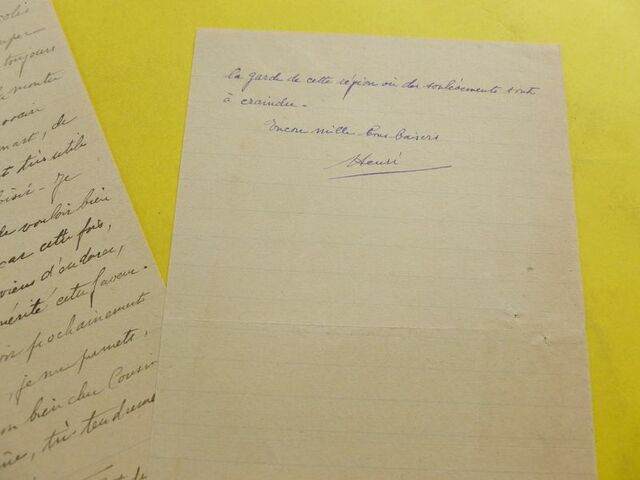 colis
toujours
la montre
, de
t très utile
Je
de vouloir bien
cette fois,
viens d'endurer,
mérité cette faveur.
prochainement
, je me permets,
bien cher Cousin
, très tendrement
et de
la garde de cette région où des soulèvements sont
à craindre.
Encore mille bons baisers
Henri